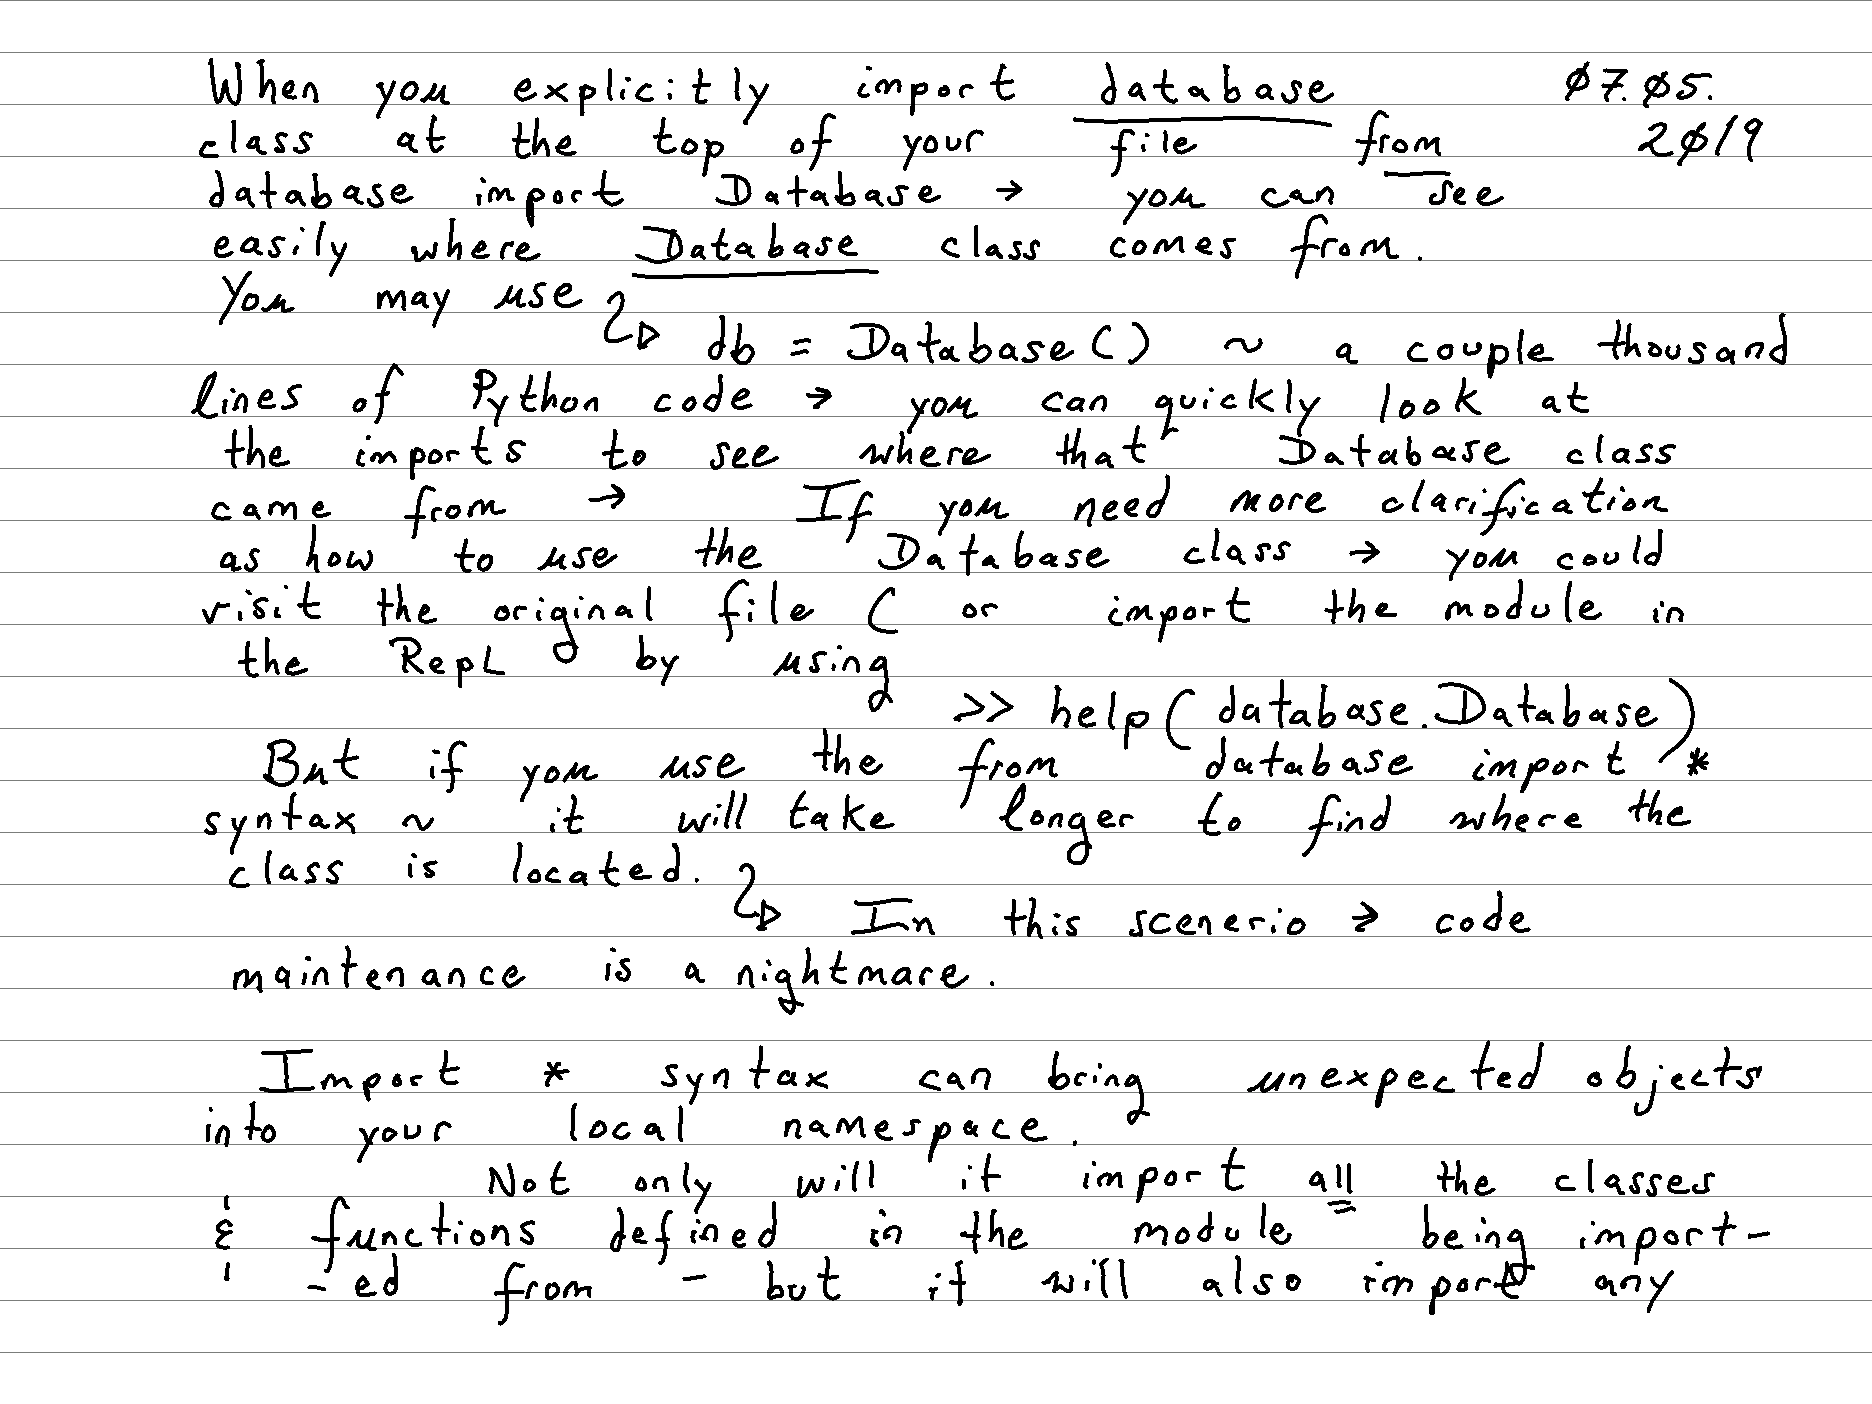 When you explicitly import database ø7.ø5.
class at the top of your file from 2ø19
database import Database → you can see
easily where Database class comes from.
You may use
db = Database() ~ a couple thousand
lines of Python code → you can quickly look at
the imports to see where that Database class
came from → If you need more clarification
as how to use the Database class → you could
visit the original file ( or import the module in
the RepL by using
>> help( database.Database)
But if you use the from database import *
syntax ~ it will take longer to find where the
class is located.
In this scenerio → code
maintenance is a nightmare.
Import * syntax can bring unexpected objects
into your local namespace.
Not only will it import all the classes
& functions defined in the module being import-
-ed from - but it will also import any